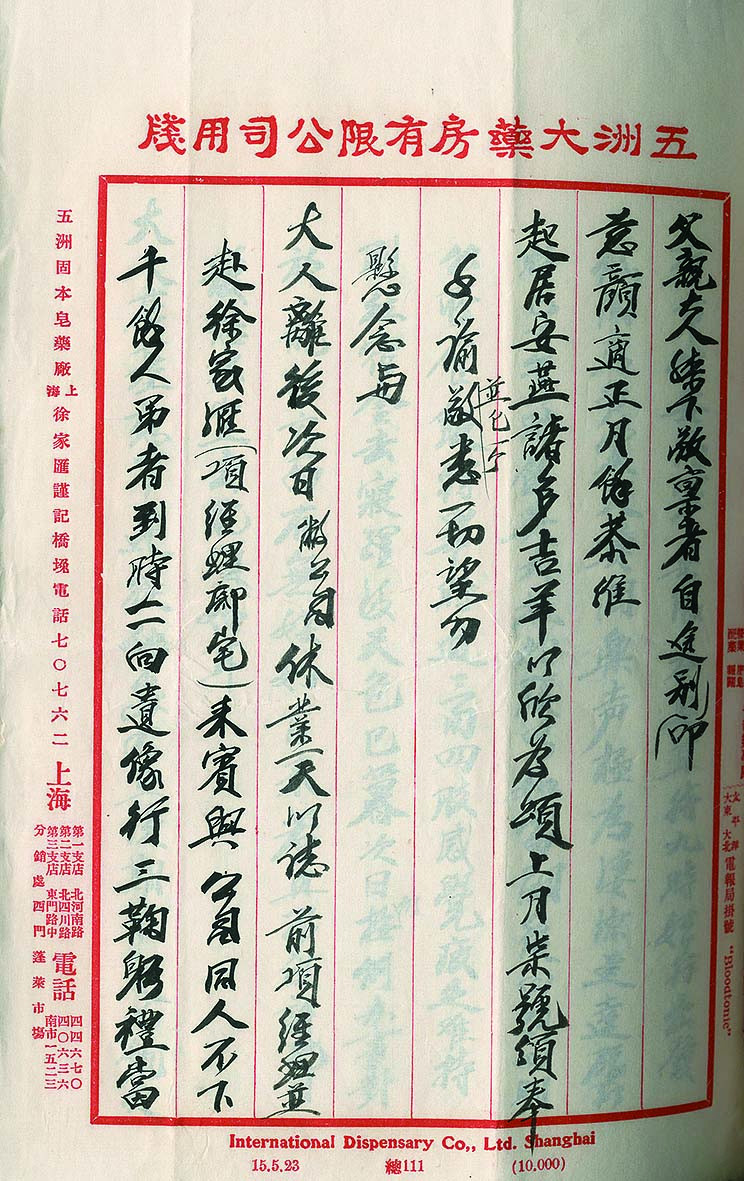 五洲大藥房有限公司用牋
父親大人膝下敬稟者自送別
慈顏適正月餘恭維
起居安燕諸多吉羊以欣為頌上月柒號須奉
手諭並包一个敬悉一切望勿
懸念与
大人離後次日敝公司休業一天以誌前項經理並
赴徐家匯(項經理鄺宅)來賓與公司同人不下
千餘人弟者到時一一向遺像行三鞠躬禮當
五洲固本皂藥廠上海徐家匯謹記橋堍電話七〇七六二
上海
第一支店 北河南路
第二支店 北四川路
第三支店 東門路中
分銷處 西門 蓬萊市場
電話
四四六七〇
四〇六三六
南市一五二三
太平洋
大東 大北
電報局掛號 "Bloodtonic"
International Dispensary Co., Ltd. Shanghai
15.5.23 總111 (10.000)